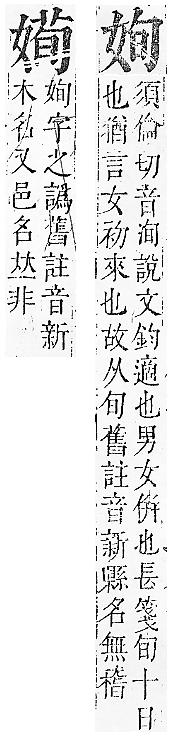 姰
須倫切音洵說文鈞適也男女倂也長箋旬十日
也猶言女初來也故从旬舊註音新縣名無稽
姰字之譌舊註音新
木名又邑名𠀤非